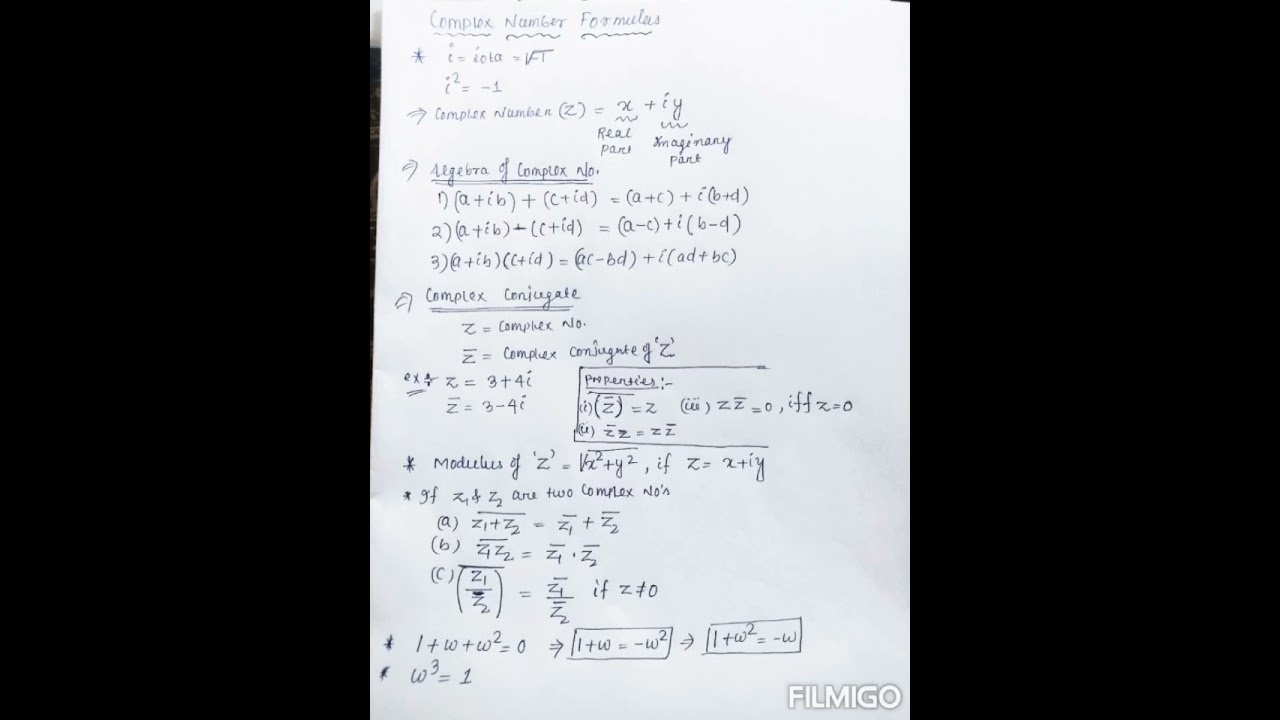 Complex Number Formulas
* i = iota = √-1
i² = -1
⇒ Complex Number (Z) = x + iy
Real part
Imaginary part
⇒ Algebra of Complex No.
1) (a+ib) + (c+id) = (a+c) + i(b+d)
2) (a+ib) - (c+id) = (a-c) + i(b-d)
3) (a+ib)(c+id) = (ac-bd) + i(ad+bc)
⇒ Complex Conjugate
z = Complex No.
z̅ = Complex Conjugate of 'Z'
ex:- z = 3+4i
z̅ = 3-4i
Properties:-
(i) \overline{(z̅)} = z (iii) z z̅ = 0, iff z=0
(ii) z̅ z = z z̅
* Modulus of 'Z' = √x²+y², if z = x+iy
* If z₁ & z₂ are two Complex No's
(a) \overline{z₁+z₂} = z̅₁ + z̅₂
(b) \overline{z₁z₂} = z̅₁ . z̅₂
(c) \overline{(z₁/z₂)} = z̅₁/z̅₂ if z≠0
* 1+ω+ω²=0 ⇒ 1+ω = -ω² ⇒ 1+ω² = -ω
* ω³ = 1
FILMIGO